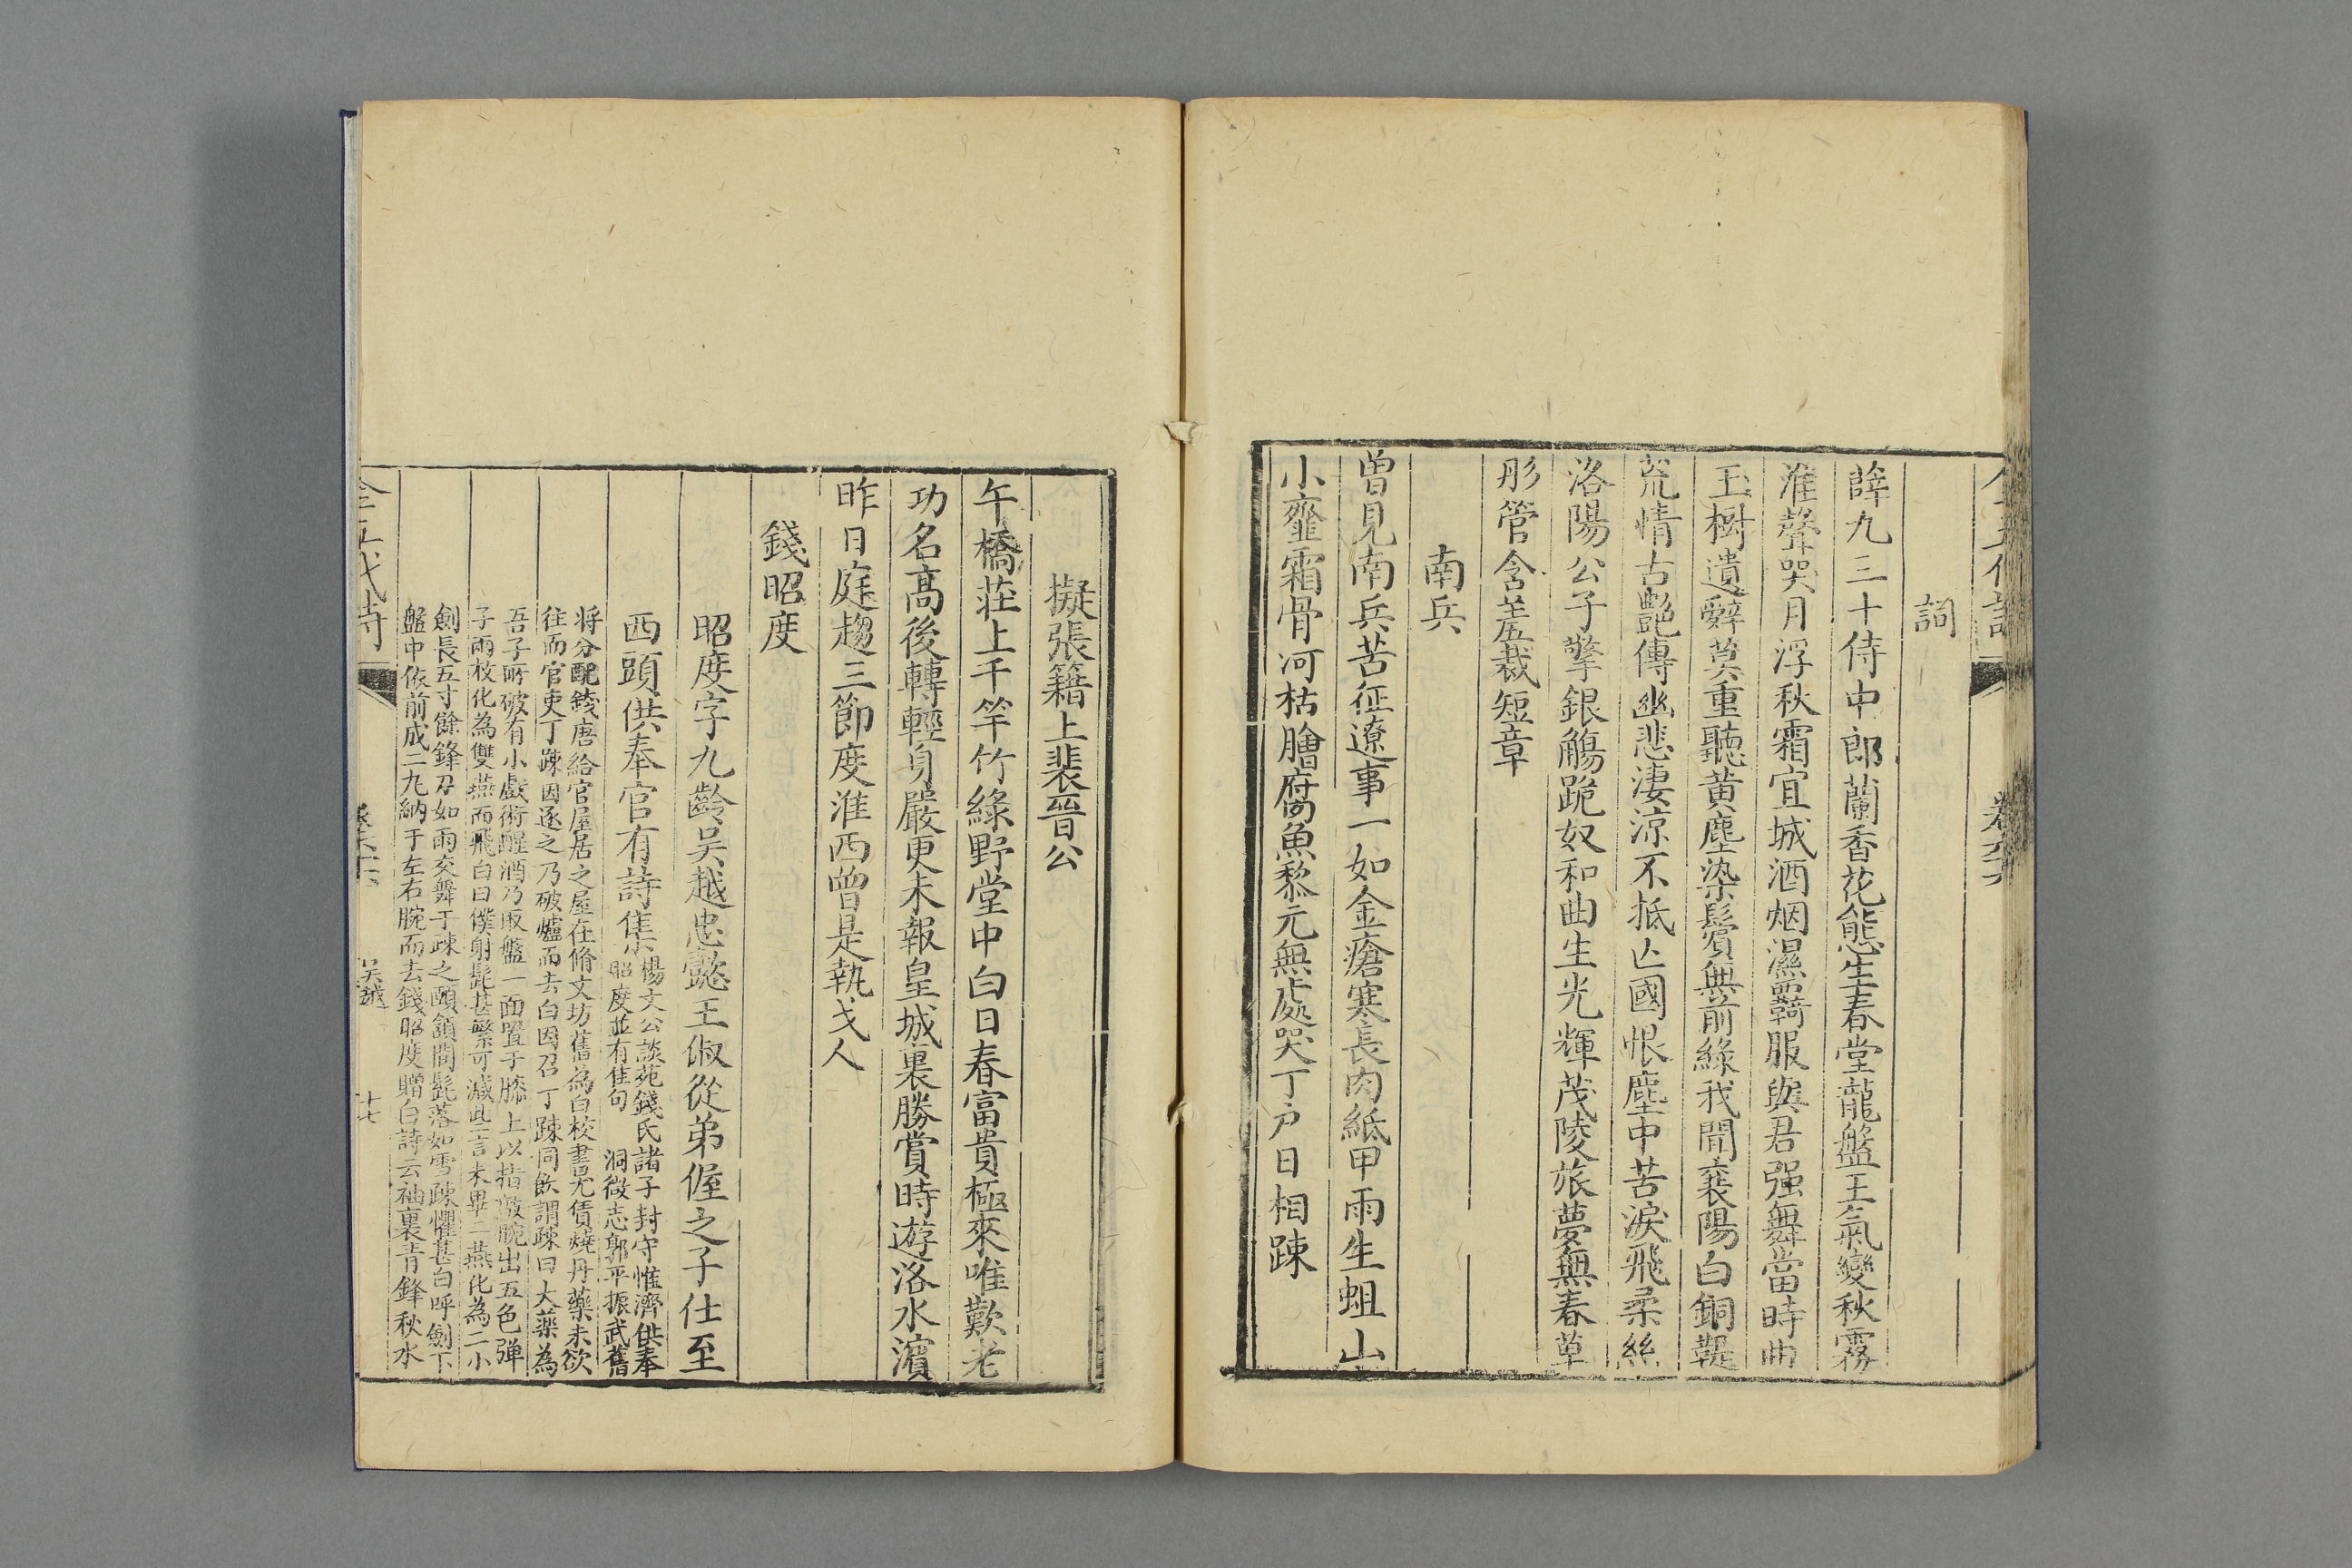 詞
薛九三十侍中郎蘭香花態生春堂龍盤王氣變秋霧
淮聲哭月浮秋霜宜城酒烟濕䩭服與君强舞當時曲
玉樹遺辭莫重聽黄塵染鬢無前綠我聞襄陽白銅鞮
荒情古艷傳幽悲淒涼不抵亾國恨塵中苦淚飛柔絲
洛陽公子擎銀觴跪奴和曲生光輝茂陵旅夢無春草
彤管含羞裁短章
南兵
曾見南兵苦征遼事一如金瘡寒長肉紙甲雨生蛆山
小齏霜骨河枯膾腐魚黎元無處哭丁户日相踈
擬張籍上裴晉公
午橋莊上千竿竹綠野堂中白日春富貴極來唯歎老
功名髙後轉輕身嚴更未報皇城裏勝賞時遊洛水濵
昨日庭趨三節度淮西曾是執戈人
錢昭度
昭度字九齡吴越忠懿王俶從弟偓之子仕至
西頭供奉官有詩集
楊文公談苑錢氏諸子封守惟濟供奉
昭度並有佳句　洞微志郭平振武舊
将分配錢唐給官屋居之屋在脩文坊舊為白校書宂賃燒丹藥未欲
往而官吏丁踈因逐之乃破爐而去白因召丁踈同飲謂踈曰大藥為
吾子所破有小戯術醒酒乃取盤一面置于膝上以指㪣腕出五色弹
子兩枚化為雙燕而飛白曰僕射髭甚繁可減此言未畢二燕化為二小
劍長五寸餘鋒刃如雨交舞于踈之頤頷間髭落如雪踈懼甚白呼劍下
盤中依前成二丸納于左右腕而去錢昭度贈白詩云袖裏青鋒秋水
全五代詩
吴越
十七